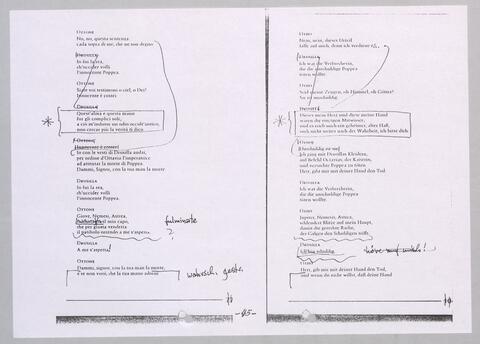 OTTONE
No, no, questa sentenza
cada sopra di me, che ne son degno
DRUSILLA
Io fui la rea,
ch'uccider volli
l'innocente Poppea.
OTTONE
Siate voi testimoni o ciel, o Dei!
Innocente è costei
DRUSILLA
Quest'alma e questa mano
fur gli complici sole,
a ciò m'indusse un odio occult'antico,
non cercar più la verità ti dico.
OTTONE
Innocente è costei
Io con le vesti di Drusilla andai,
per ordine d'Ottavia l'imperatrice
ad attentar la morte di Poppea.
Dammi, Signor, con la tua man la morte.
DRUSILLA
Io fui la rea,
ch'uccider volli
l'innocente Poppea.
OTTONE
Giove, Nemesi, Astrea,
il mio capo, fulminate
che per giusta vendetta ?
il patibolo orrendo a me s'aspetta.
DRUSILLA
A me s'aspetta!
OTTONE
Dammi, signor, con la tua man la morte,
e se non vuoi, che la tua mano adorni
-95-
OTHO
Nein, nein, dieses Urteil
falle auf mich, denn ich verdiene es.
DRUSILLA
Ich war die Verbrecherin,
die die unschuldige Poppea
töten wollte.
OTHO
Seid meine Zeugen, oh Himmel, oh Götter!
Sie ist unschuldig
DRUSILLA
Dieses mein Herz und diese meine Hand
waren die einzigen Mittäter,
und es trieb mich ein geheimer, alter Haß,
such nicht weiter nach der Wahrheit, ich bitte dich
OTHO
Unschuldig ist sie!
Ich ging mit Drusillas Kleidern,
auf Befehl Octavias, der Kaiserin,
und versuchte Poppea zu töten
Herr, gib mir mit deiner Hand den Tod.
DRUSILLA
Ich war die Verbrecherin,
die die unschuldige Poppea
töten wollte.
OTHO
Jupiter, Nemesis, Astrea,
schleudert Blitze auf mein Haupt,
damit die gerechte Rache,
der Galgen den Schuldigen trifft.
DRUSILLA
Ich bin schuldig. höre auf mich!
OTHO
Herr, gib mir mit deiner Hand den Tod,
und wenn du nicht willst, daß deine Hand